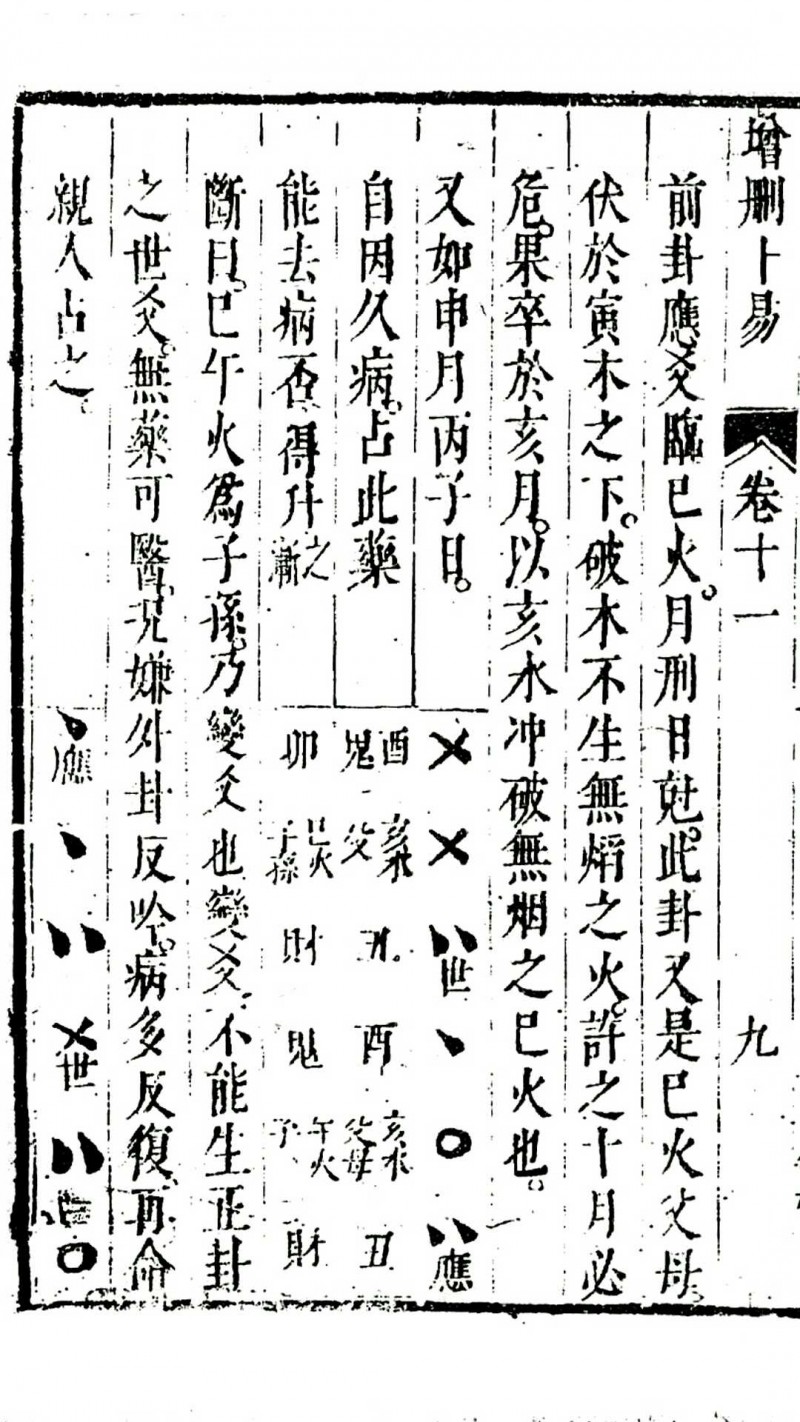 增刪卜易 卷十一 九
前卦應爻臨巳火。月刑日尅。此卦又是巳火父母。
伏於寅木之下。破木不生無熖之火。許之十月必
危。果卒於亥月。以亥水冲破無烟之巳火也。
又如申月丙子日。
自因久病。占此藥
能去病否。得升之漸
世
應
酉鬼 亥水父 丑 酉 亥水父母 丑
卯 巳火子孫 財 鬼 午火子 財
斷曰。巳午火爲子孫。乃變爻也。變爻不能生正卦
之世爻。無藥可醫。況嫌外卦反吟。病多反復。再命
親人占之。
應
世